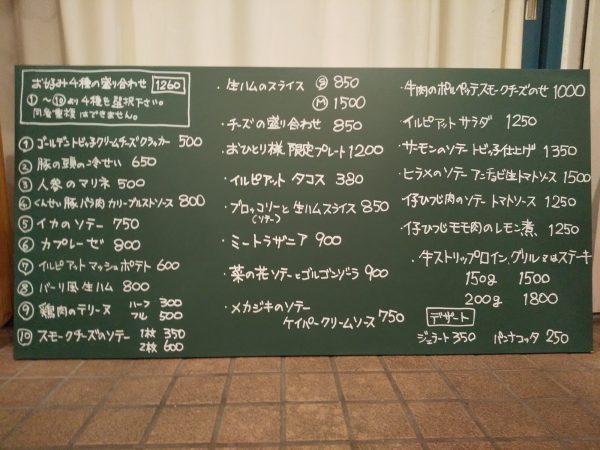 お好み4種の盛り合わせ 1260
①～⑩より4種を選択下さい。
同皿重複はできません。
① ゴールデントビッ子クリームチーズクラッカー 500
② 豚の頭の冷せい 650
③ 人参のマリネ 500
④ くんせい豚バラ肉カリーブルストソース 800
⑤ イカのソテー 750
⑥ カプレーゼ 800
⑦ イルピアットマッシュポテト 600
⑧ パーリ風生ハム 800
⑨ 鶏肉のテリーヌ ハーフ 300
フル 500
⑩ スモークチーズのソテー 1枚 350
2枚 600
・生ハムのスライス Ⓢ 850
Ⓜ 1500
・チーズの盛り合わせ 850
・おひとり様限定プレート 1200
・イルピアット タコス 380
・ブロッコリーと生ハムスライス 850
(ソテー)
・ミートラザニア 900
・菜の花ソテーとゴルゴンゾーラ 900
・メカジキのソテー
ケイパークリームソース 750
・牛肉のポルペッテスモークチーズのせ 1000
・イルピアット サラダ 1250
・サーモンのソテー トビッ子仕上げ 1350
・ヒラメのソテー アンチョビ生トマトソース 1500
・仔ひつじ肉のソテー トマトソース 1250
・仔ひつじモモ肉のレモン煮、1250
・牛ストリップロイン、グリルまたはステーキ
150g 1500
200g 1800
デザート
ジェラート 350 パンナコッタ 250